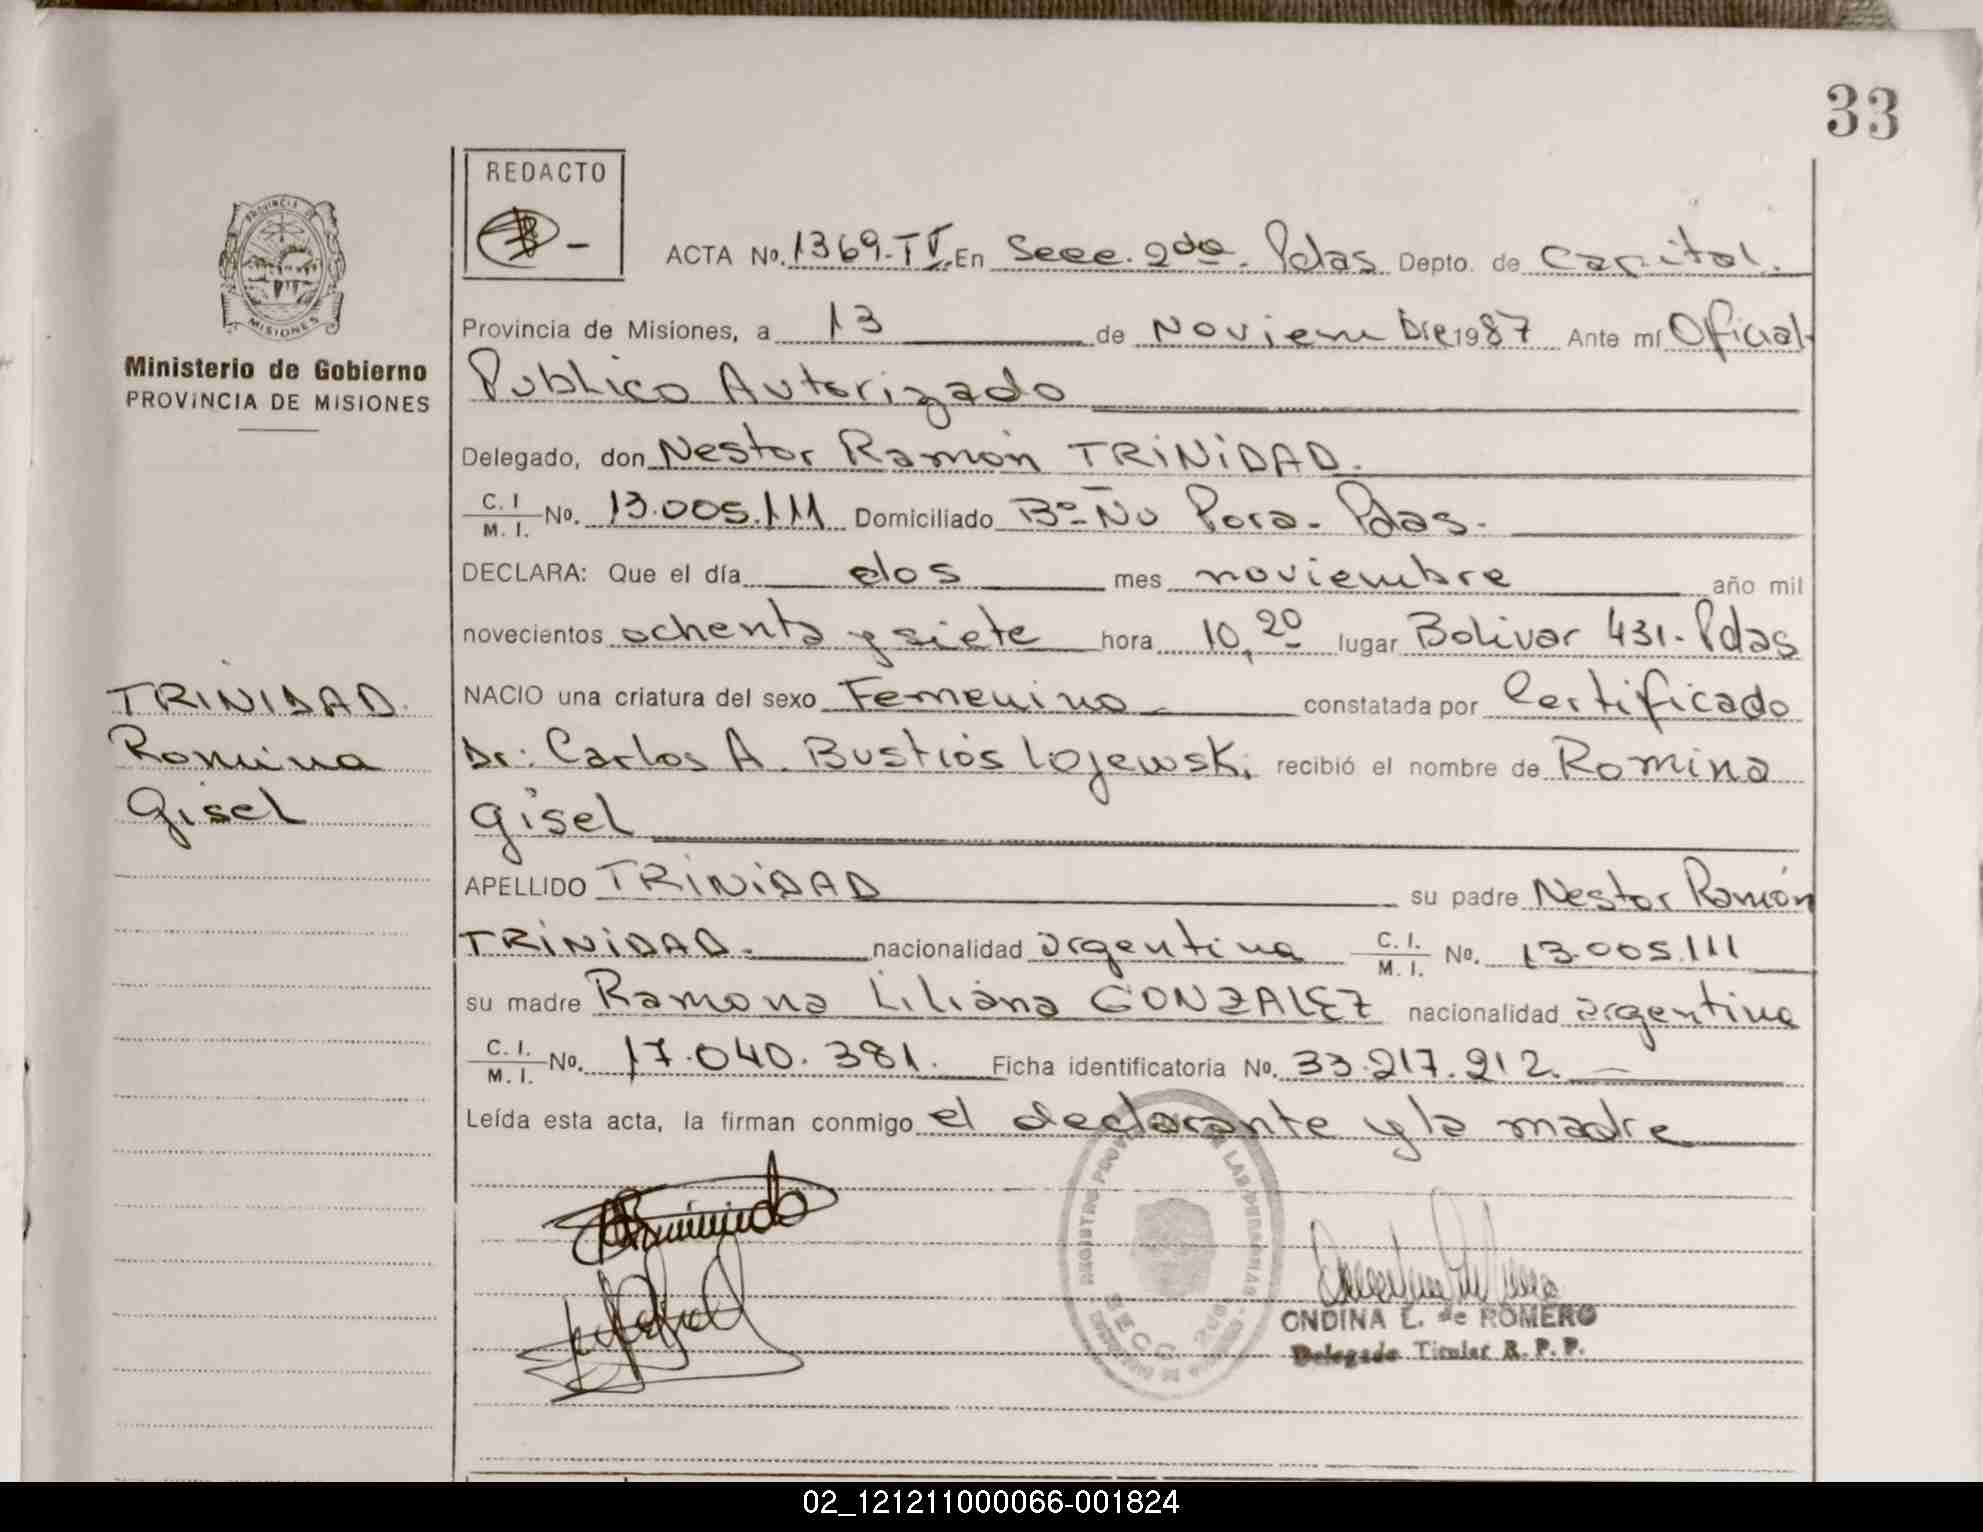 33
REDACTO
PROVINCIA DE
MISIONES
Ministerio de Gobierno
PROVINCIA DE MISIONES
ACTA No. 1369-TV. En Secc. 2da. Pdas Depto. de Capital.
Provincia de Misiones, a 13 de Noviembre 1987 Ante mí Oficial
Publico Autorizado
Delegado, don Nestor Ramón TRINIDAD.
C. I. / M. I. No. 13.005.111 Domiciliado Bº Ñu Pora - Pdas.
DECLARA: Que el día dos mes noviembre año mil
novecientos ochenta y siete hora 10,20 lugar Bolivar 431- Pdas
NACIO una criatura del sexo Femenino constatada por Certificado
Dr: Carlos A. Bustios Lojewski recibió el nombre de Romina
Gisel
APELLIDO TRINIDAD su padre Nestor Ramón
TRINIDAD. nacionalidad argentina C. I. / M. I. No. 13.005.111
su madre Ramona Liliana GONZALEZ nacionalidad argentina
C. I. / M. I. No. 17.040.381. Ficha identificatoria No. 33.217.212.
Leída esta acta, la firman conmigo el declarante y la madre
TRINIDAD.
Romina
Gisel
ONDINA L. de ROMERO
Delegado Titular R. P. P.
02_121211000066-001824